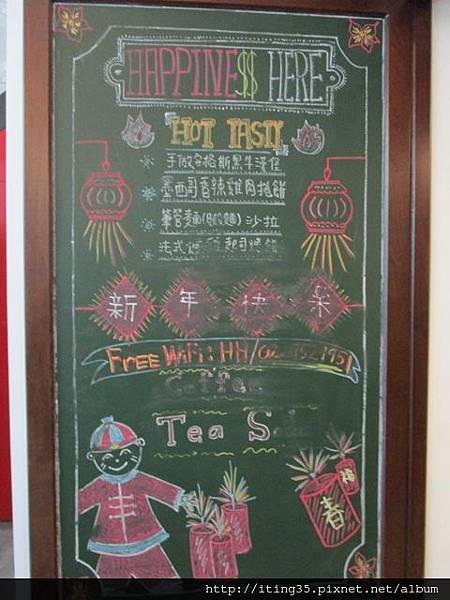 HAPPINE$$ HERE
HOT TASTY
手做安格斯黑牛漢堡
墨西哥香辣雞肉捲餅
筆管麵(蝦麵)沙拉
法式 起司
新年快樂
FREE WiFi: HH/
Coffee
Tea S
福
春
http://iting35.pixnet.net/album